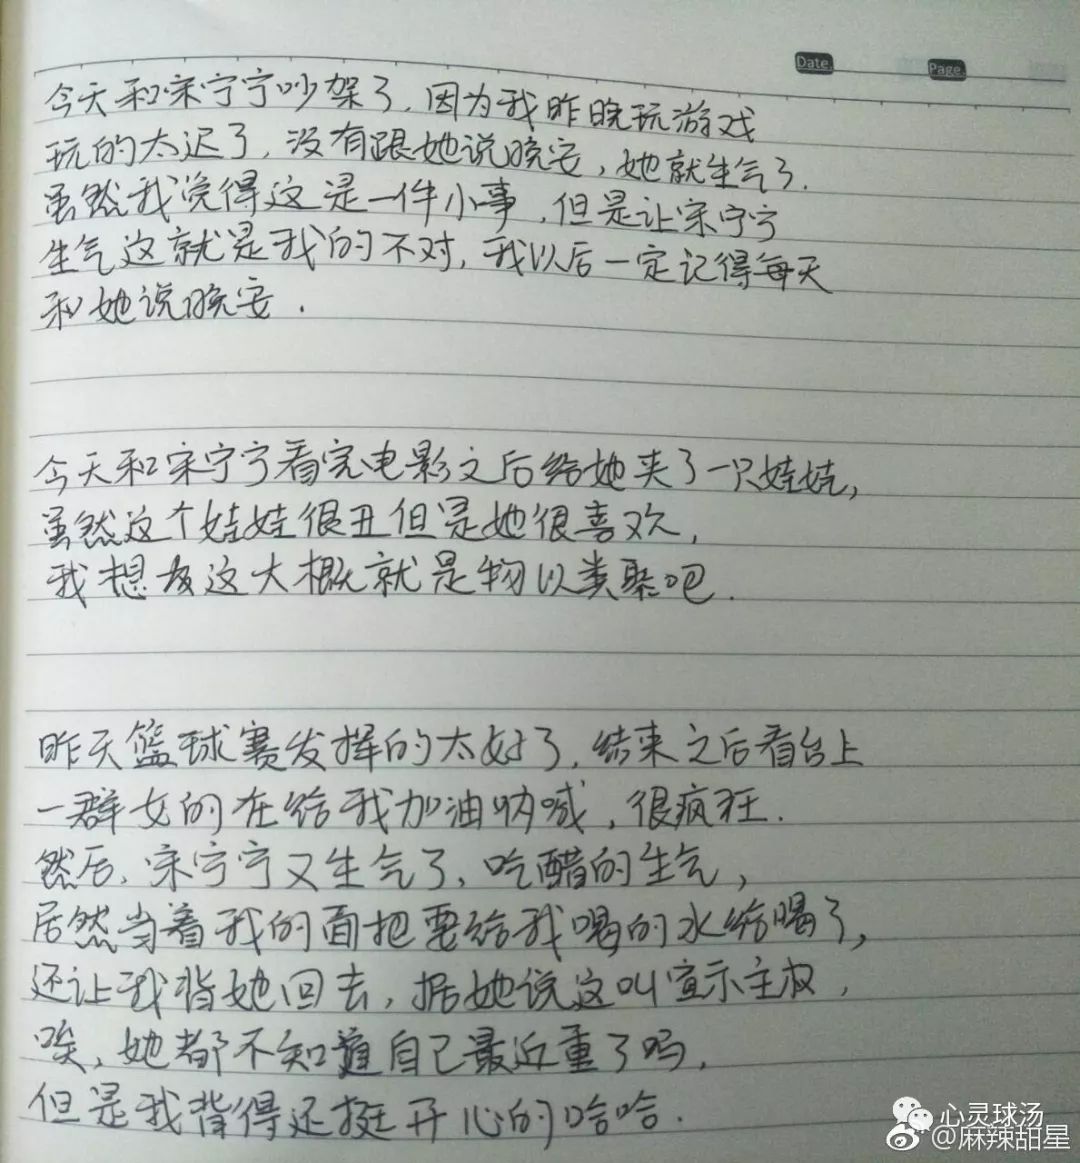 Date.
Page.
今天和宋宁宁吵架了，因为我昨晚玩游戏
玩的太迟了，没有跟她说晚安，她就生气了．
虽然我觉得这是一件小事，但是让宋宁宁
生气这就是我的不对，我以后一定记得每天
和她说晚安．
今天和宋宁宁看完电影之后给她夹了一只娃娃，
虽然这个娃娃很丑但是她很喜欢，
我想这大概就是物以类聚吧．
昨天篮球赛发挥的太好了，结束之后看台上
一群女的在给我加油呐喊，很疯狂．
然后，宋宁宁又生气了，吃醋的生气，
居然当着我的面把要给我喝的水给喝了，
还让我背她回去，据她说这叫宣示主权，
唉，她都不知道自己最近重了吗，
但是我背得还挺开心的哈哈．
心灵球汤
@麻辣甜星